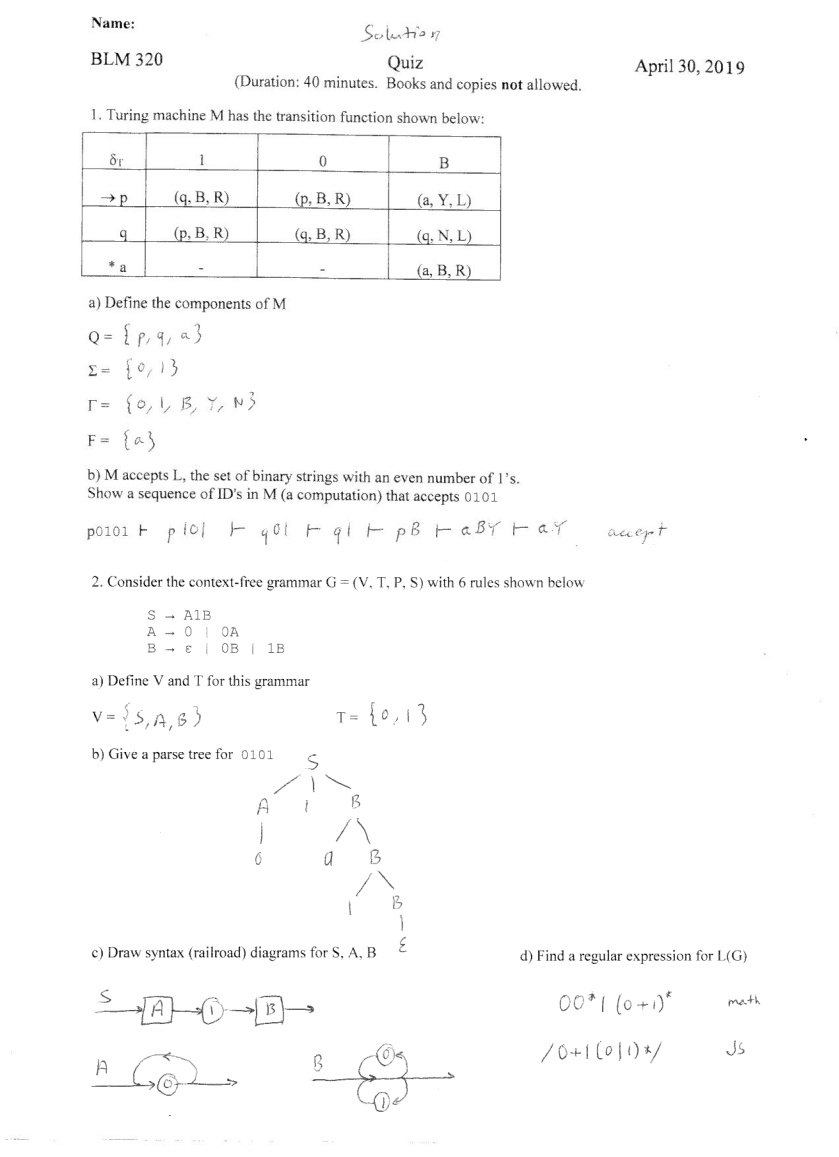 Name:
Solution
BLM 320 Quiz April 30, 2019
(Duration: 40 minutes. Books and copies not allowed.
1. Turing machine M has the transition function shown below:
δΓ 1 0 B
→ p (q, B, R) (p, B, R) (a, Y, L)
q (p, B, R) (q, B, R) (q, N, L)
* a - - (a, B, R)
a) Define the components of M
Q = {p, q, a}
Σ = {0, 1}
Γ = {0, 1, B, Y, N}
F = {a}
b) M accepts L, the set of binary strings with an even number of 1's.
Show a sequence of ID's in M (a computation) that accepts 0101
p0101 ⊢ p101 ⊢ q01 ⊢ q1 ⊢ pB ⊢ aBY ⊢ aY accept
2. Consider the context-free grammar G = (V, T, P, S) with 6 rules shown below
S → A1B
A → 0 | 0A
B → ε | 0B | 1B
a) Define V and T for this grammar
V = {S, A, B} T = {0, 1}
b) Give a parse tree for 0101
S
A 1 B
0 0 B
1 B
ε
c) Draw syntax (railroad) diagrams for S, A, B
d) Find a regular expression for L(G)
S A 1 B
00*1 (0+1)* math
/0+1(0|1)*/ JS
A 0
B 0
1